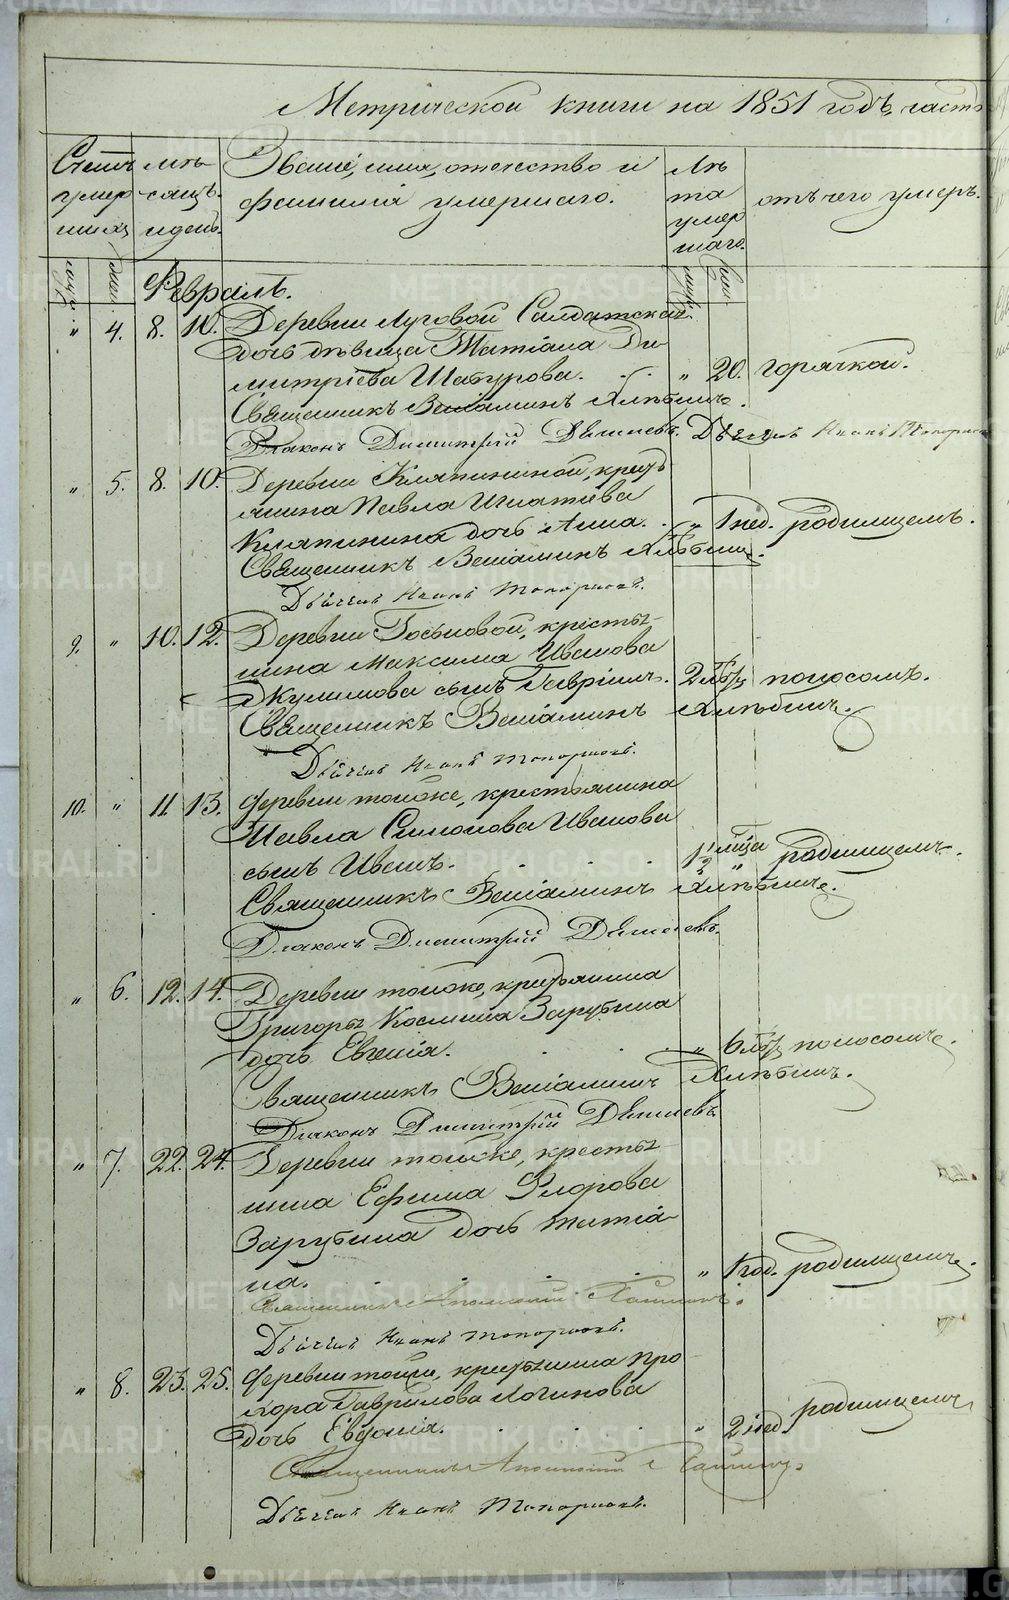 Метрической книги на 1851 годъ, часть
Счетъ умершихъ
мѣсяцъ и день.
Званіе, имя, отечество и фамилія умершаго.
Лѣта умершаго.
отъ чего умеръ.
Февраль.
" 4. 8. 10. Деревни Луговой Салдатская
дочь дѣвица Татіана Ди-
митріева Шатурова. " 20. горячкой.
Священникъ Веніаминъ
Діаконъ Димитрій Дьячекъ Иванъ Топорковъ
" 5. 8. 10. Деревни Кляпининой, кресть
янина Павла Игнатіева
Кляпинина дочь Анна. " 1 нед. родимцемъ.
Священникъ Веніаминъ
Дьячекъ Иванъ Топорковъ.
9. " 10. 12. Деревни крестья-
нина Максима Иванова
сынъ Гавріилъ. поносомъ.
Священникъ Веніаминъ
Дьячекъ Иванъ Топорковъ.
10. " 11. 13. Деревни тойже, крестьянина
Павла Симонова Иванова
сынъ Иванъ. 1/2 " родимцемъ.
Священникъ Веніаминъ
Діаконъ Димитрій
" 6. 12. 14. Деревни тойже, крестьянина
Григорья Космина Зарубина
дочь Евгенія. " поносомъ.
Священникъ Веніаминъ
Діаконъ Димитрій
" 7. 22. 24. Деревни тойже, крестья
нина Ефима Флорова
Зарубина дочь Татіа-
на. " 1 год. родимцемъ.
Священникъ
Дьячекъ Иванъ Топорковъ.
" 8. 23. 25. Деревни тойже, крестьянина Про
хора Гаврилова Логинова
дочь Евдокія. " 2 нед. родимцемъ
Священникъ
Дьячекъ Иванъ Топорковъ.
METRIKI.GASO-URAL.RU